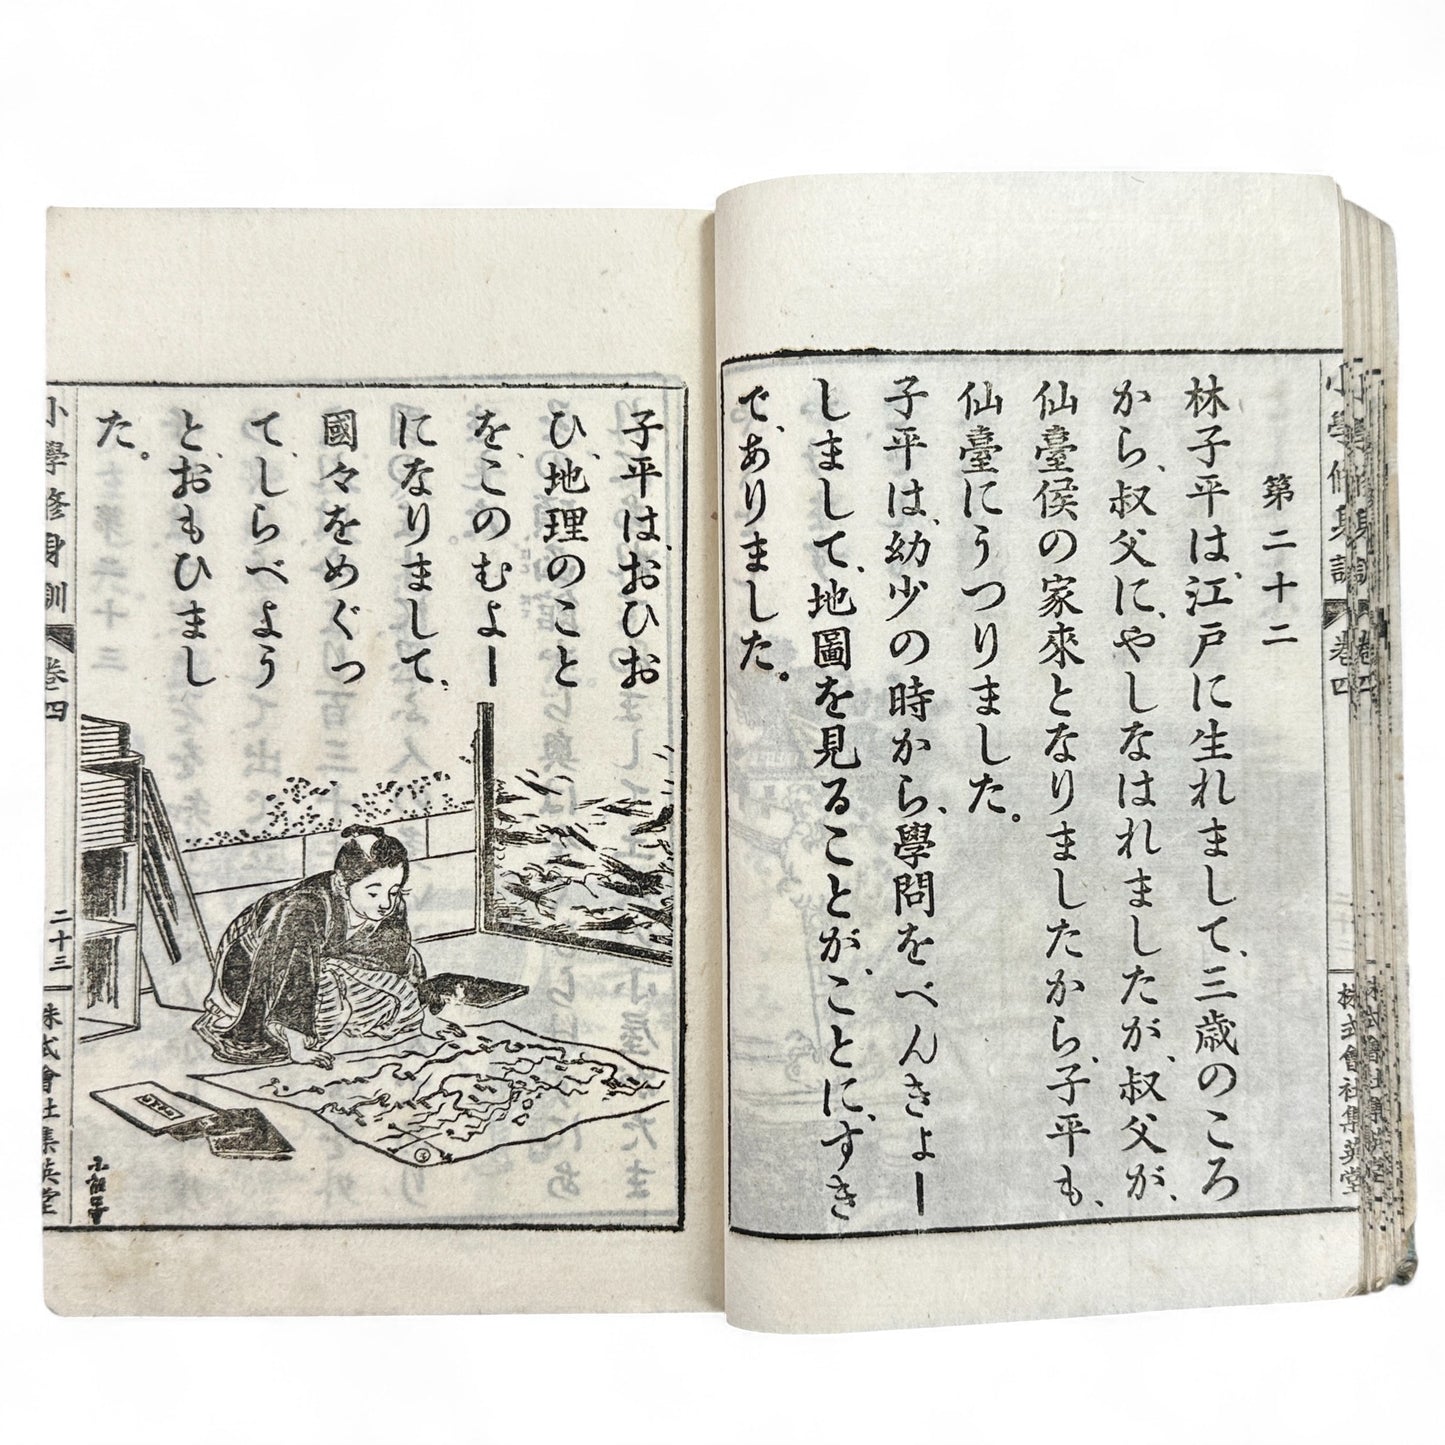 第二十二
林子平は、江戸に生れまして、三歳のころ
から、叔父に、やしなはれましたが、叔父が、
仙臺侯の家來となりましたから、子平も、
仙臺にうつりました。
子平は、幼少の時から、學問をべんきょー
しまして、地圖を見ることが、ことに、すき
で、ありました。
子平は、おひお
ひ、地理のこと
を、このむよー
になりまして、
國々をめぐつ
て、しらべよう
と、おもひまし
た。
小學修身訓
卷四
二十三
株式會社集英堂